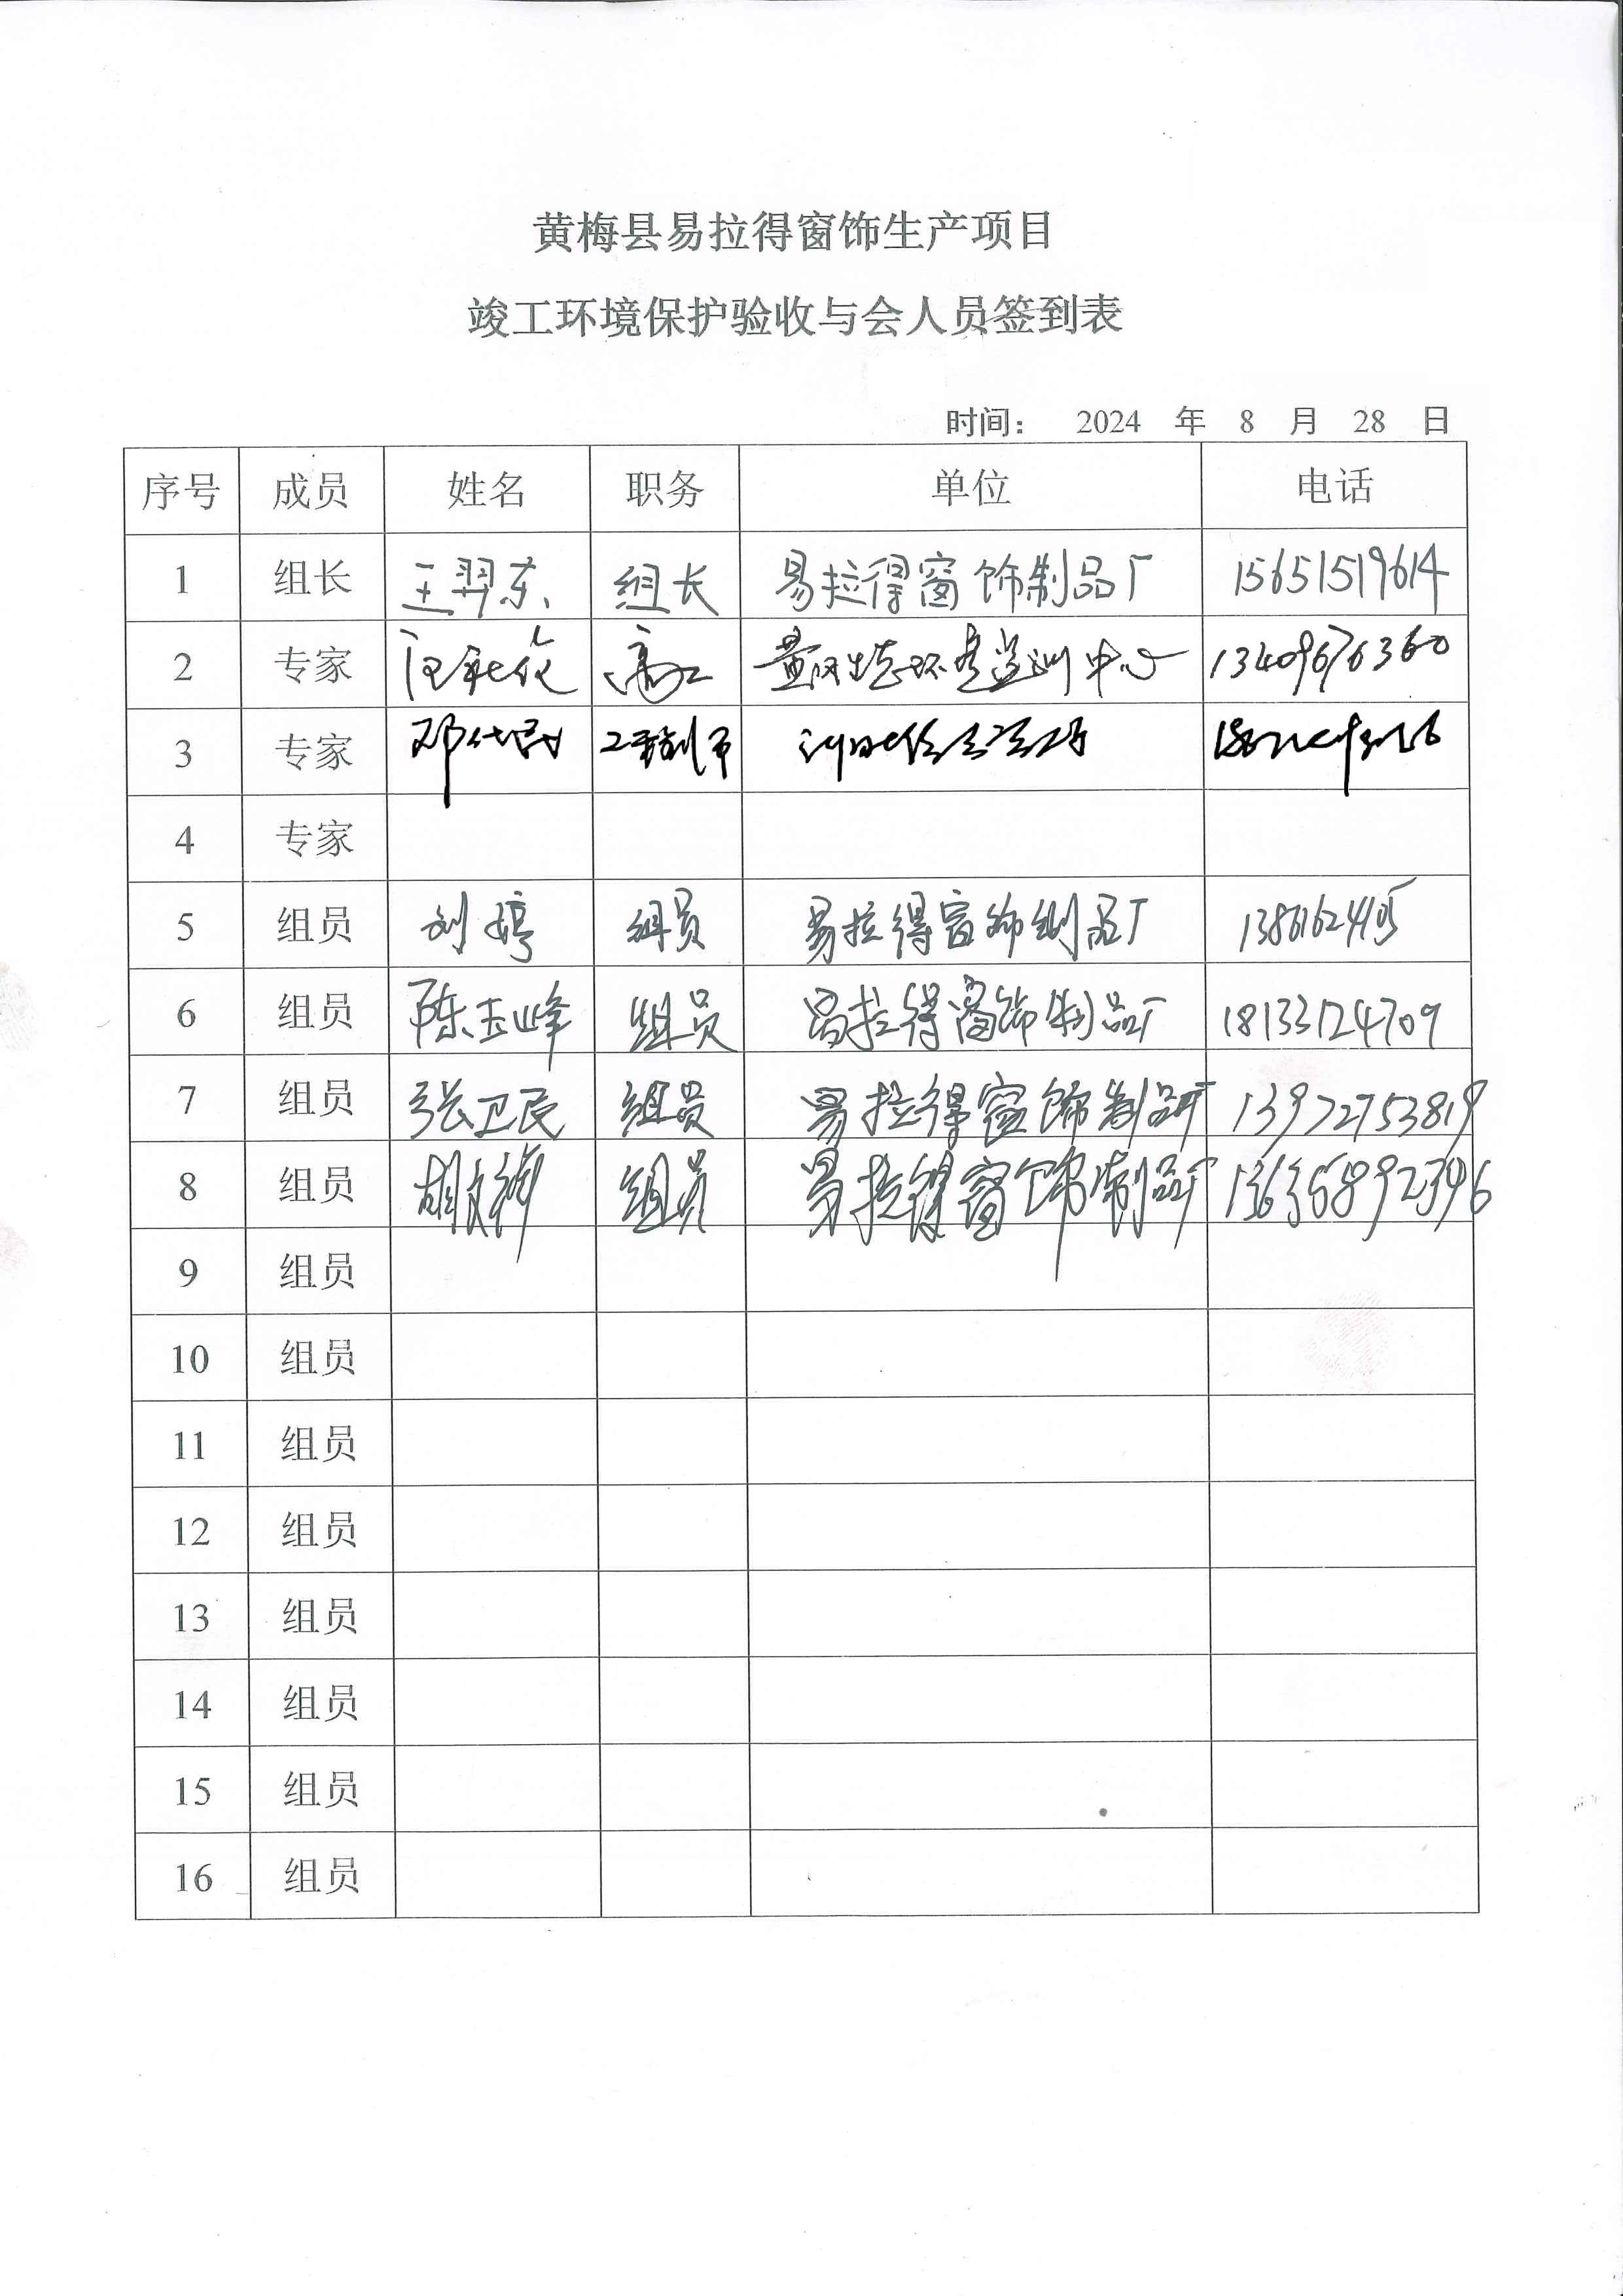 黄梅县易拉得窗饰生产项目
竣工环境保护验收与会人员签到表
时间： 2024 年 8 月 28 日
序号 成员 姓名 职务 单位 电话
1 组长 王羿东 组长 易拉得窗饰制品厂 15651519614
2 专家 高工 13409676360
3 专家 邓代
4 专家
5 组员 刘婷 组员 易拉得窗饰制品厂
6 组员 陈玉峰 组员 易拉得窗饰制品厂 18133124709
7 组员 张卫民 组员 易拉得窗饰制品厂 13972753819
8 组员 胡 组员 易拉得窗饰制品厂 13636892346
9 组员
10 组员
11 组员
12 组员
13 组员
14 组员
15 组员
16 组员